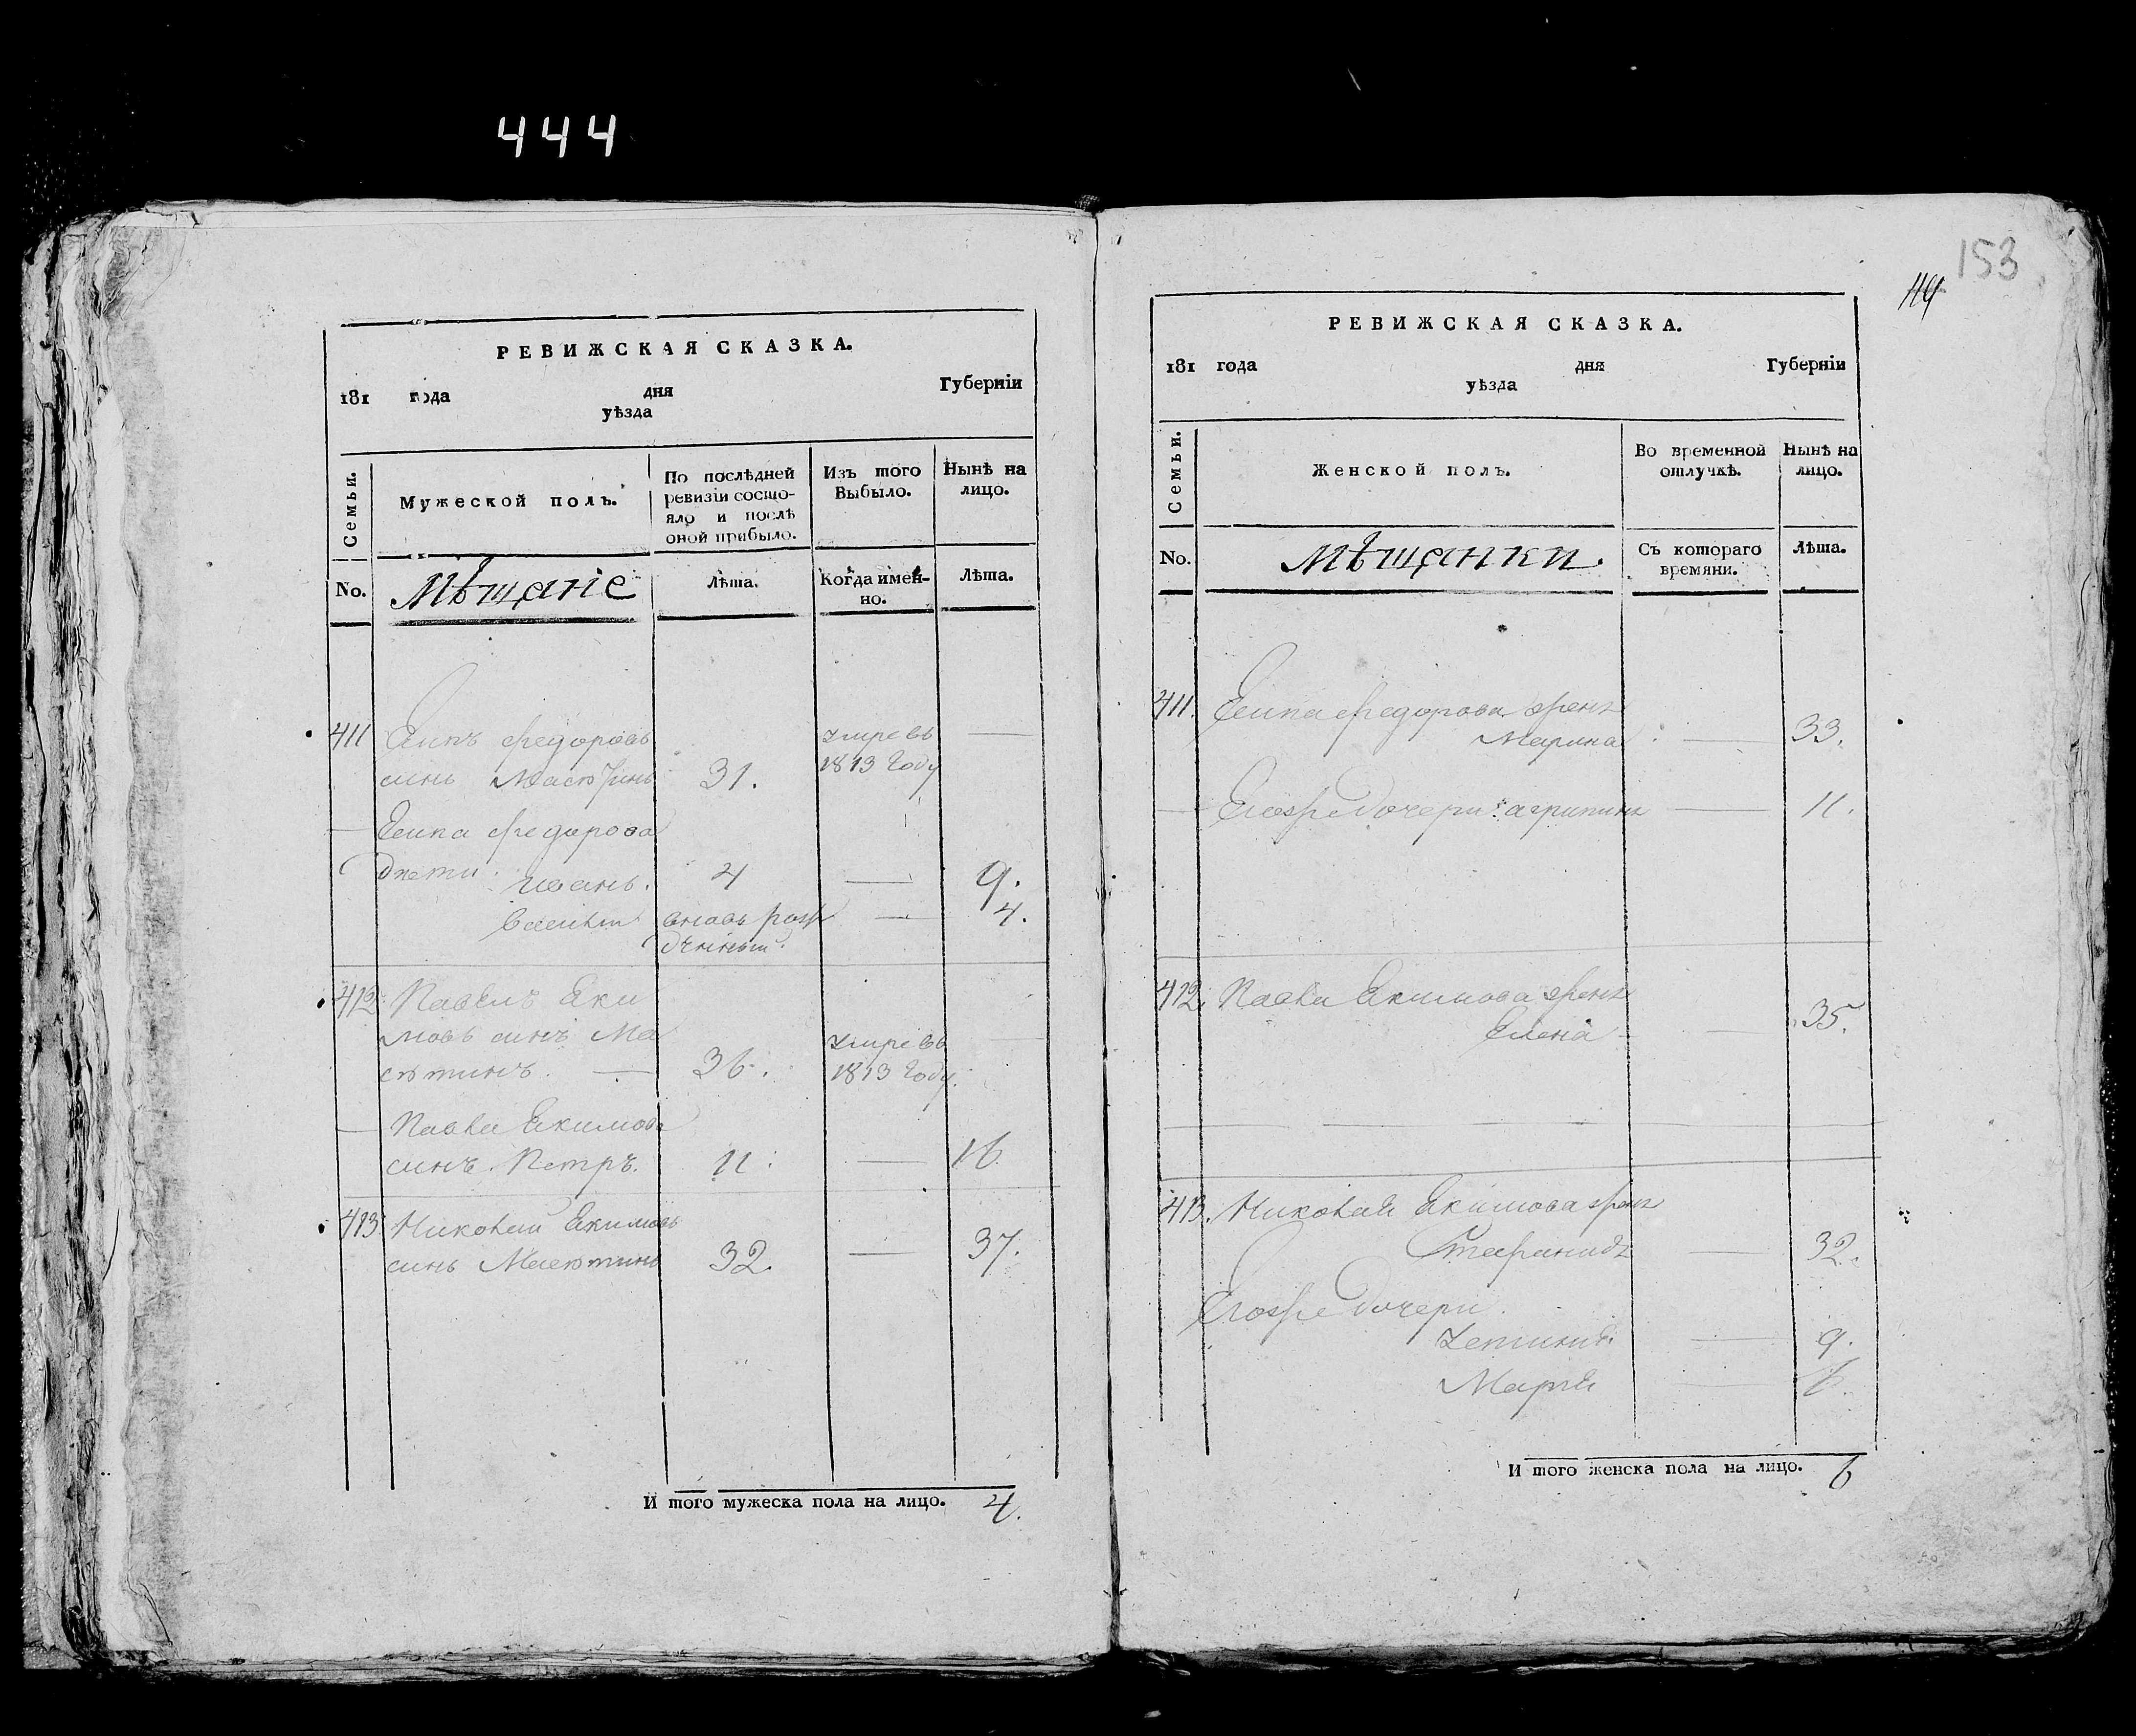 444
РЕВИЖСКАЯ СКАЗКА.
181 года дня Губерніи
уѣзда
Семьи.
Мужеской полъ.
По послѣдней ревизіи состояло и послѣ оной прибыло.
Изъ того Выбыло.
Нынѣ на лицо.
No.
Мѣщаніе
Лѣта.
Когда именно.
Лѣта.
411 федоровъ умре въ
сынъ 31. 1813 Году
федорова
дѣти иванъ. 4 9.
василей вновь рож 4.
412 Павелъ Еки
мовъ сынъ Ма умре въ
36. 1813 Году.
Павла Екимова
сынъ Петръ. 11 16
413 Николай Екимовъ
сынъ 32. 37.
И того мужеска пола на лицо. 4.
153
РЕВИЖСКАЯ СКАЗКА.
181 года дня Губерніи
уѣзда
Семьи.
Женской полъ.
Во временной отлучкѣ.
Нынѣ на лицо.
No.
Мѣщанки.
Съ котораго времяни.
Лѣта.
411. федорова жена
Марина 33.
Егожъ дочери: 11.
412. Павла Екимова жена
Елена 35.
413. Николая Екимова жена
32.
Егожъ дочери.
9.
Марья 6.
И того женска пола на лицо. 6